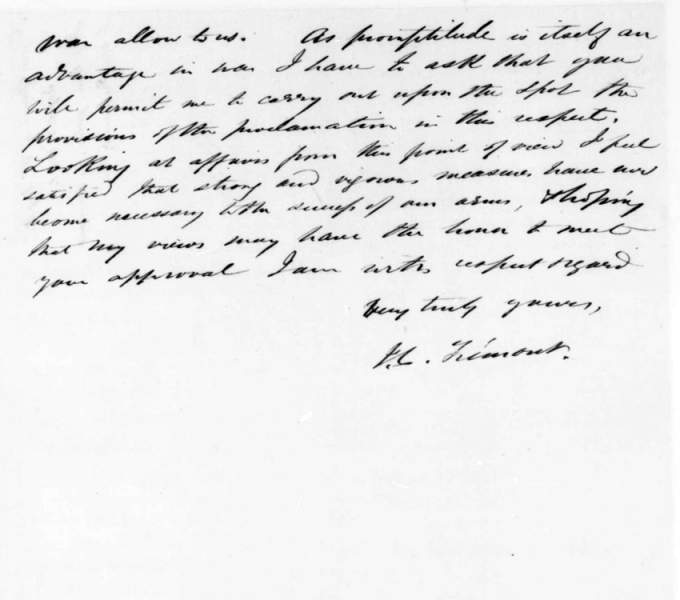 war allow to us. As promptitude is itself an
advantage in war I have to ask that you
will permit me to carry out upon the spot the
provisions of the proclamation in this respect.
Looking at affairs from this point of view I feel
satisfied that strong and vigorous measures have now
become necessary to the success of our arms, & hoping
that my views may have the honor to meet
your approval I am with respect & regard
Very truly yours,
J.C. Frémont.